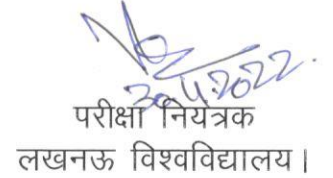 30.4.2022.
परीक्षा नियंत्रक
लखनऊ विश्वविद्यालय।